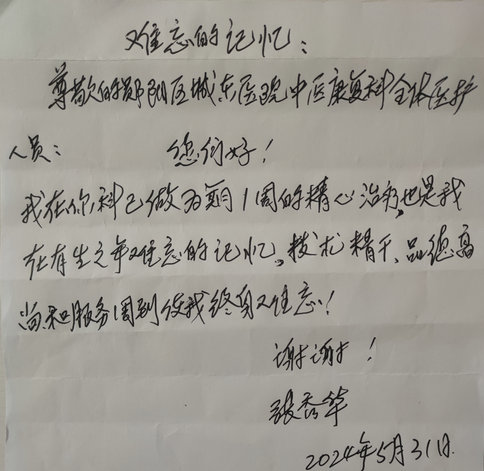 难忘的记忆：
尊敬的郧阳区城东医院中医康复科全体医护
人员：　　您们好！
我在你科已做为期1周的精心治疗,也是我
在有生之年难忘的记忆。技术精干、品德高
尚和服务周到使我终身难忘！
谢谢！
张秀华
2024年5月31日.